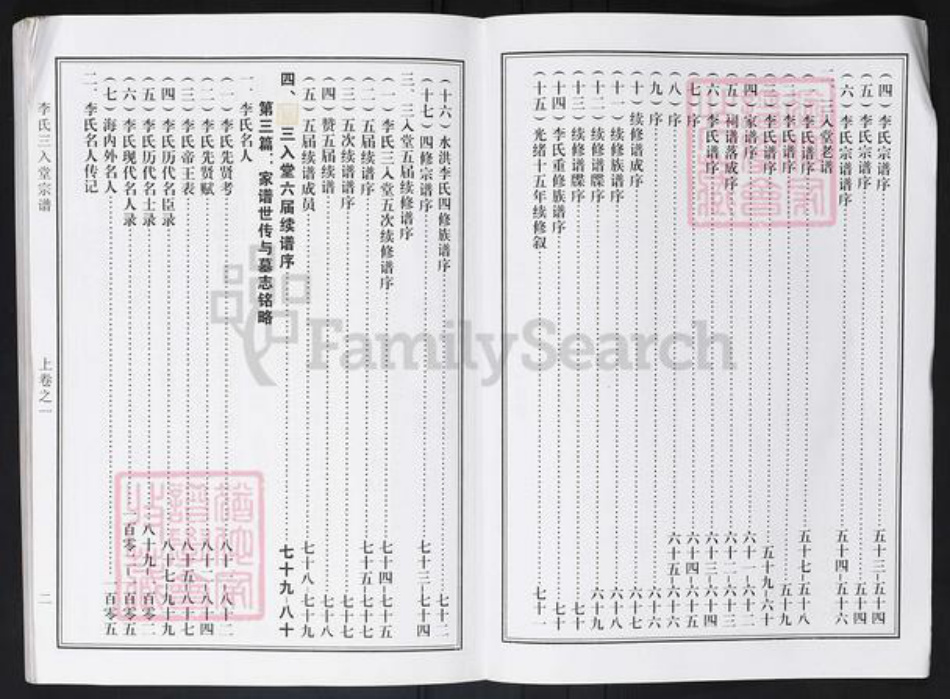 （四）李氏宗谱序 五十三－五十四
（五）李氏宗谱序 五十四
（六）李氏宗谱谱序 五十四－五十六
二、三入堂老谱
（一）李氏谱序 五十七－五十八
（二）李氏谱序 五十九
（三）李氏谱序 五十九－六十
（四）家谱序 六十一－六十二
（五）祠谱落成序 六十二－六十三
（六）李氏谱序 六十三－六十四
（七）序 六十四－六十五
（八）序 六十五－六十六
（九）序 六十六
（十）续修谱成序 六十七
（十一）续修族谱序 六十八
（十二）续修谱牒序 六十八
（十三）续修谱牒序 六十九
（十四）李氏重修族谱序 七十
（十五）光绪十五年续修叙 七十一
（十六）水洪李氏四修族谱序 七十二
（十七）四修宗谱序 七十三－七十四
三、三入堂五届续修谱序
（一）李氏三入堂五次续修谱序 七十四－七十五
（二）五届续谱序 七十五－七十七
（三）五次续谱谱序 七十七
（四）赞五届续谱 七十八
（五）五届续谱成员 七十八－七十九
四、三入堂六届续谱序 七十九－八十
第三篇：家谱世传与墓志铭略
一、李氏名人
（一）李氏先贤考 八十一－八十二
（二）李氏先贤赋 八十二－八十四
（三）李氏帝王表 八十五－八十七
（四）李氏历代名臣录 八十七－八十九
（五）李氏历代名士录 八十九－一百零二
（六）李氏现代名人录 一百零二－一百零五
（七）海内外名人 一百零五
二、李氏名人传记
李氏三入堂宗谱
上卷之一
二
FamilySearch